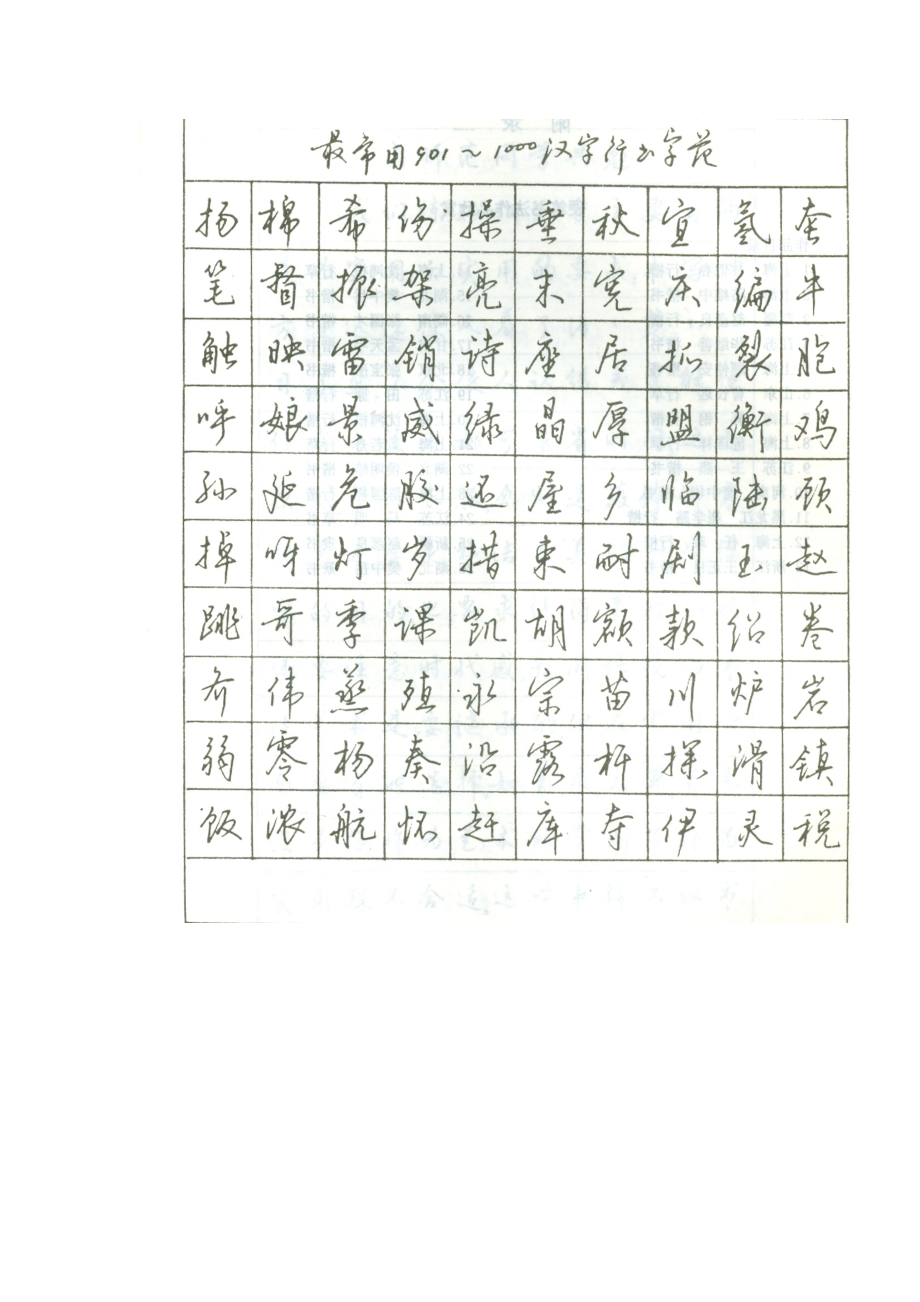 最常用901~1000汉字行书字范
扬 棉 希 伤 操 垂 秋 宜 氢 套
笔 督 振 架 亮 末 宪 庆 编 牛
触 映 雷 销 诗 座 居 抓 裂 胞
呼 娘 景 威 绿 晶 厚 盟 衡 鸡
孙 延 危 胶 还 屋 乡 临 陆 顾
掉 呀 灯 岁 措 束 耐 剧 玉 赵
跳 哥 季 课 凯 胡 额 款 绍 卷
齐 伟 蒸 殖 永 宗 苗 川 炉 岩
弱 零 杨 奏 沿 露 杆 探 滑 镇
饭 浓 航 怀 赶 库 夺 伊 灵 税